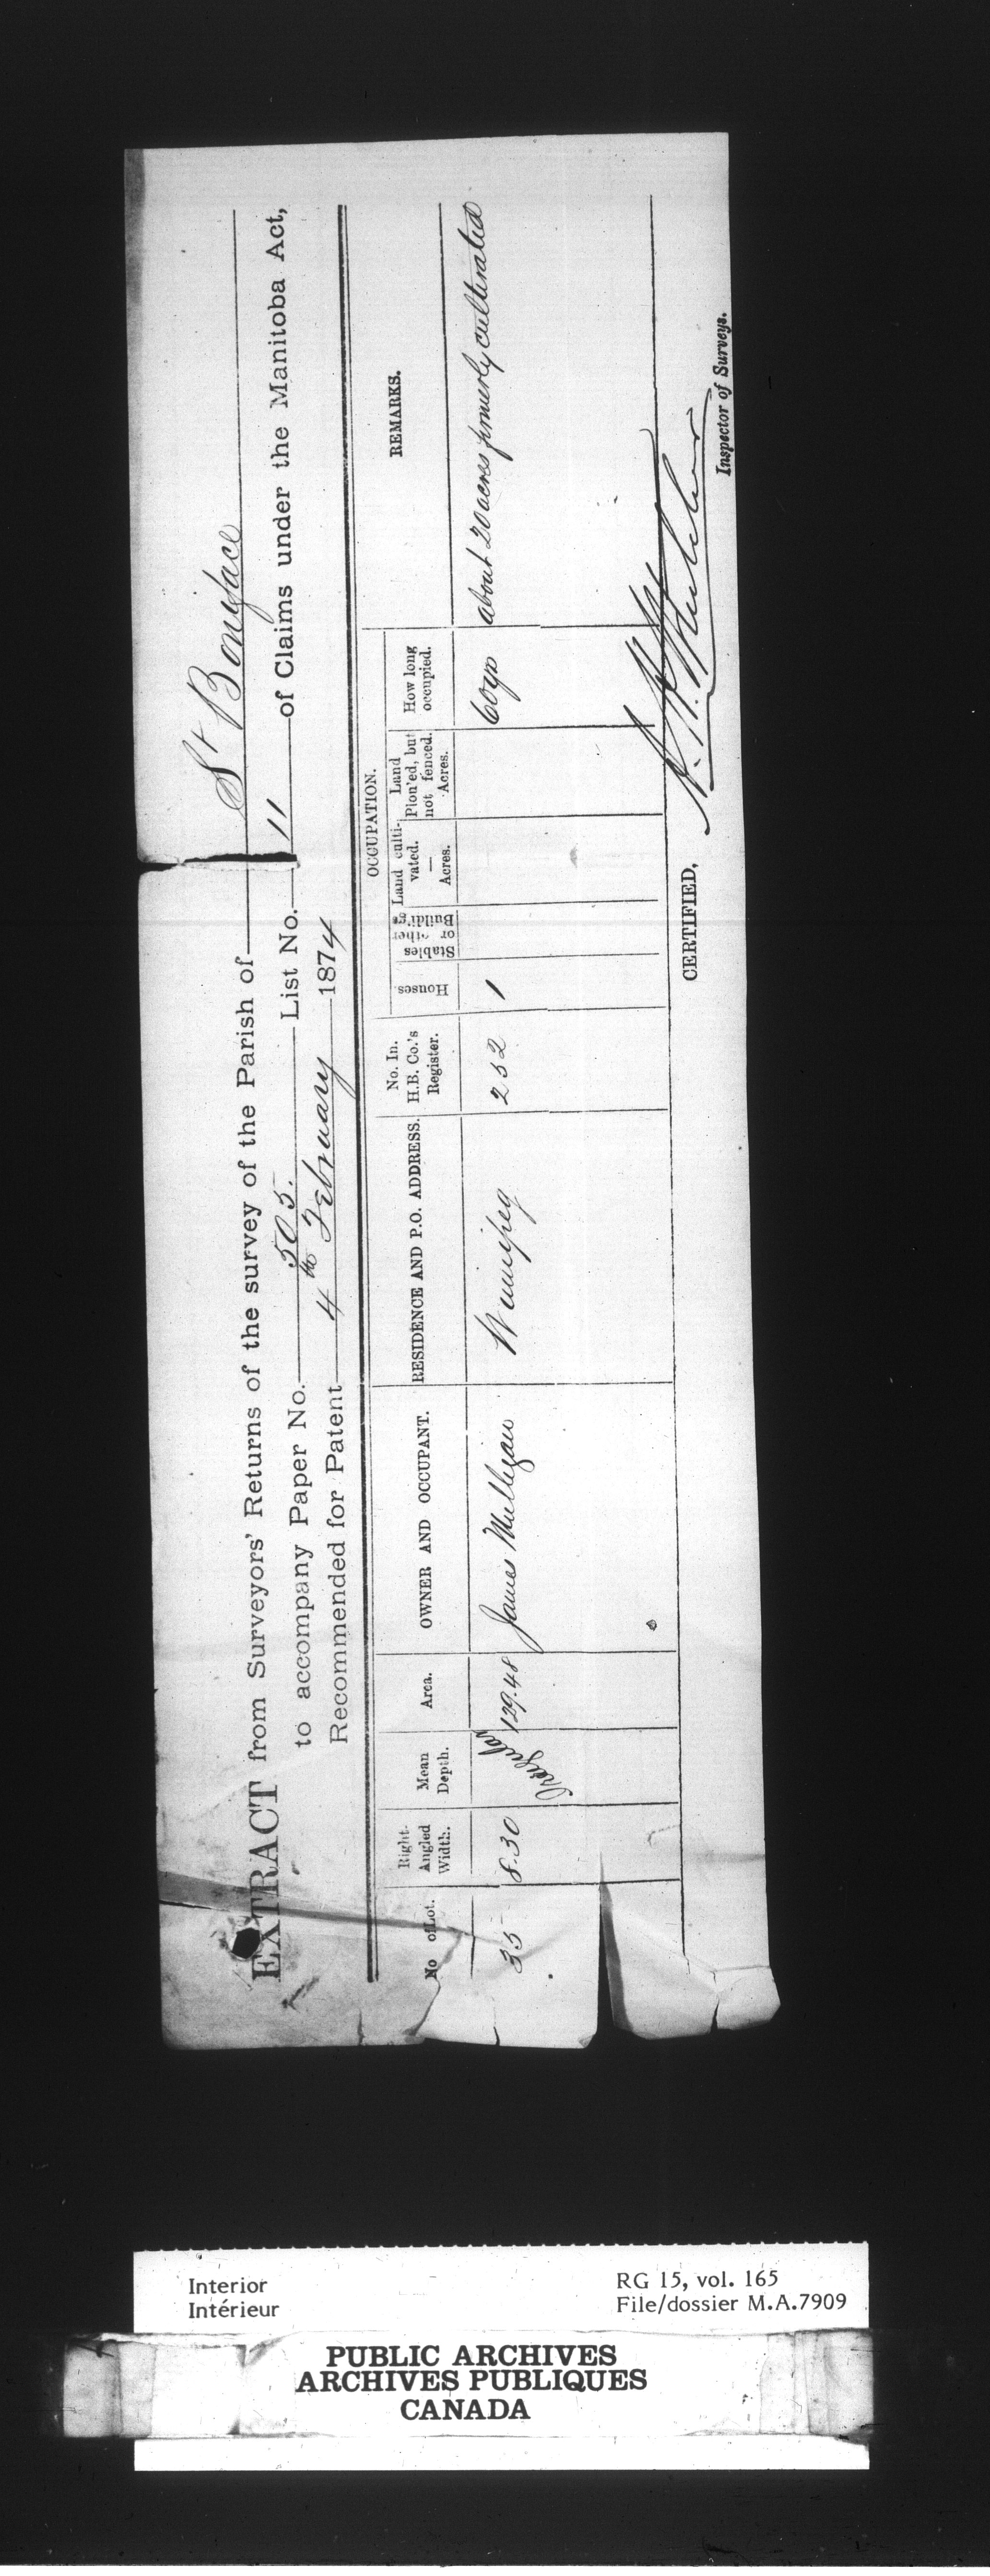 EXTRACT from Surveyors' Returns of the survey of the Parish of St Boniface
to accompany Paper No. 505. List No. 11 of Claims under the Manitoba Act,
Recommended for Patent 4th February 1874
OCCUPATION.
No of Lot. Right-Angled Width. Mean Depth. Area. OWNER AND OCCUPANT. RESIDENCE AND P.O. ADDRESS. No. In. H.B. Co.'s Register. Houses. Stables or other Buildings Land culti-vated. — Acres. Land Plou'ed, but not fenced. Acres. How long occupied. REMARKS.
35 8.30 Irregular 129.48 James Mulligan Winnipeg 252 1 60 yrs about 20 acres formerly cultivated
CERTIFIED,
Inspector of Surveys.
Interior
Intérieur
RG 15, vol. 165
File/dossier M.A.7909
PUBLIC ARCHIVES
ARCHIVES PUBLIQUES
CANADA